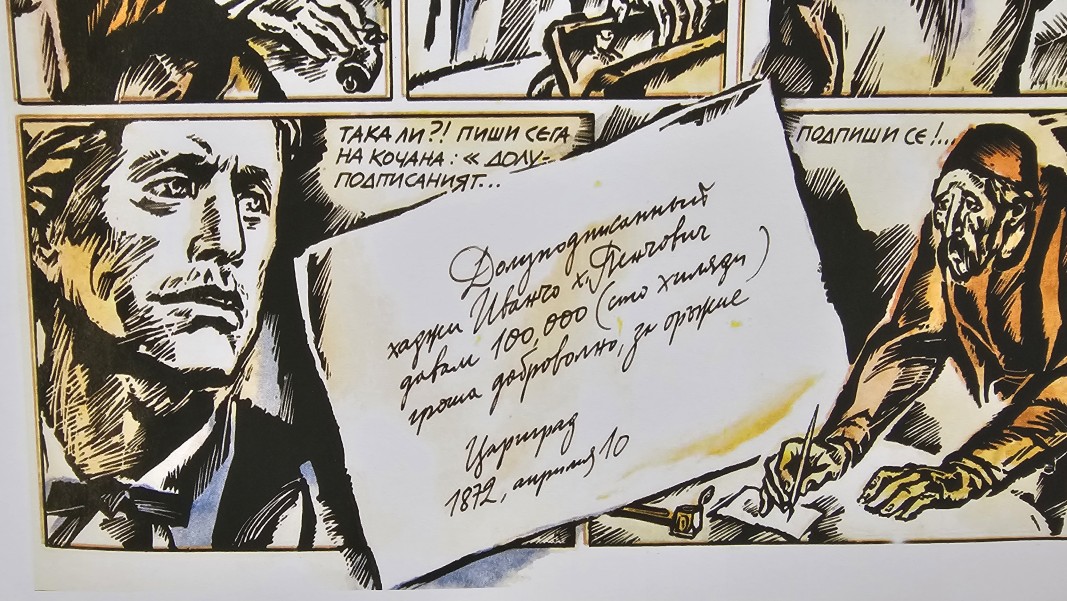 ТАКА ЛИ?! ПИШИ СЕГА
НА КОЧАНА: « ДОЛУ-
ПОДПИСАНИЯТ...
Долуподписанный
хаджи Иванчо х. Пенчович
давам 100,000 (сто хиляди)
гроша доброволно, за оръжие
Цариград
1872, априлия 10
ПОДПИШИ СЕ!...